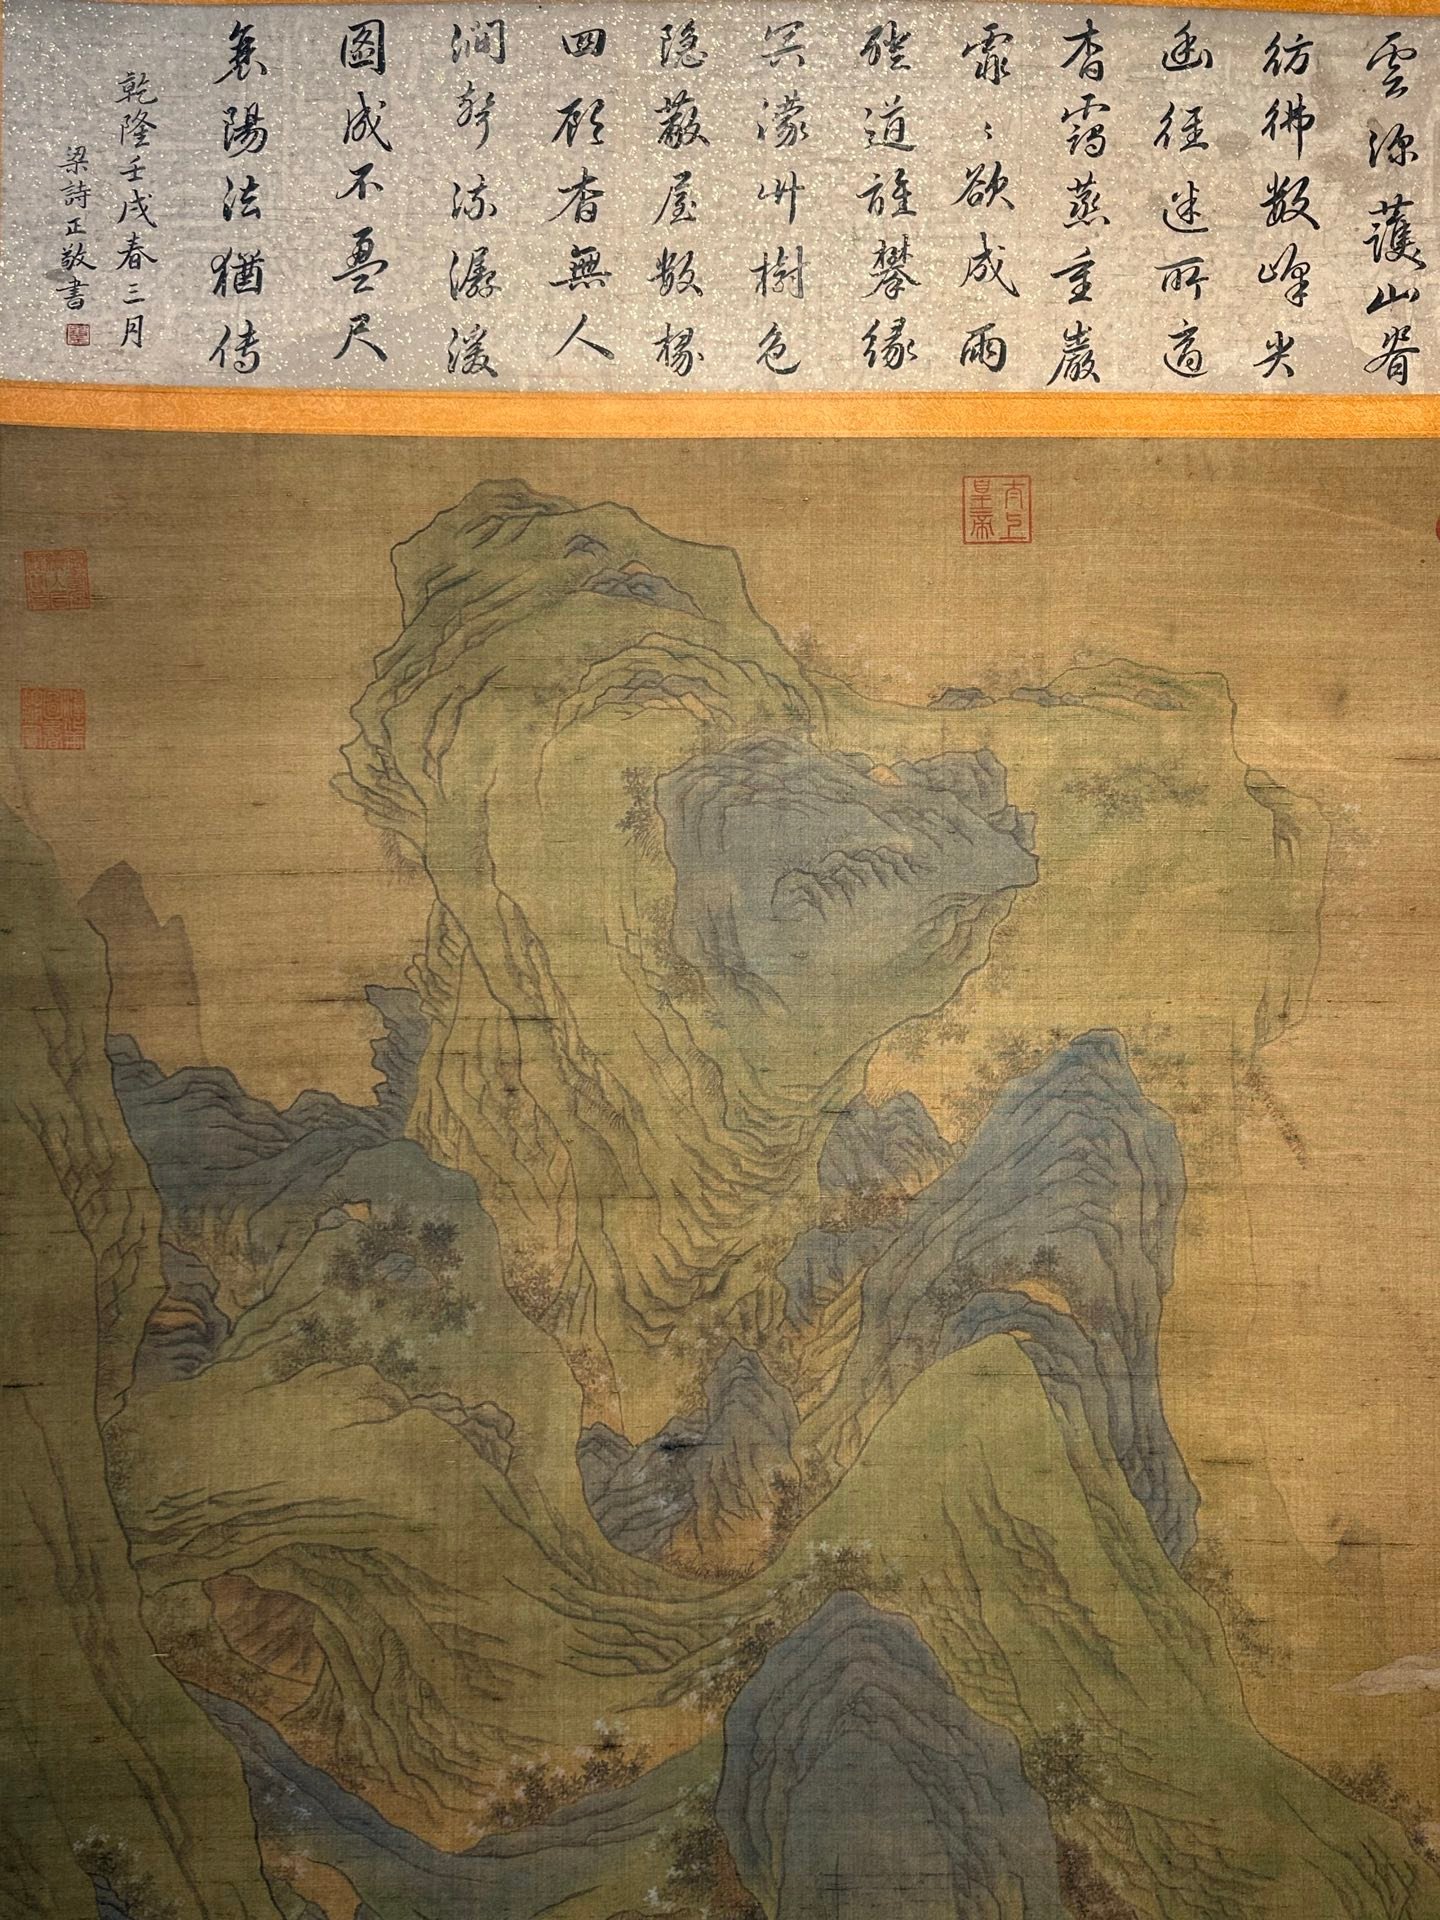 雲深護山脊
彷彿數峰尖
幽徑迷所適
杳靄蒸重巖
霏〻欲成雨
磴道誰攀緣
冥濛艸樹色
隐蔽屋數椽
四顧杳無人
澗聲流潺湲
圖成不盈尺
襄陽法猶傳
乾隆壬戌春三月
梁詩正敬書
太上
皇帝